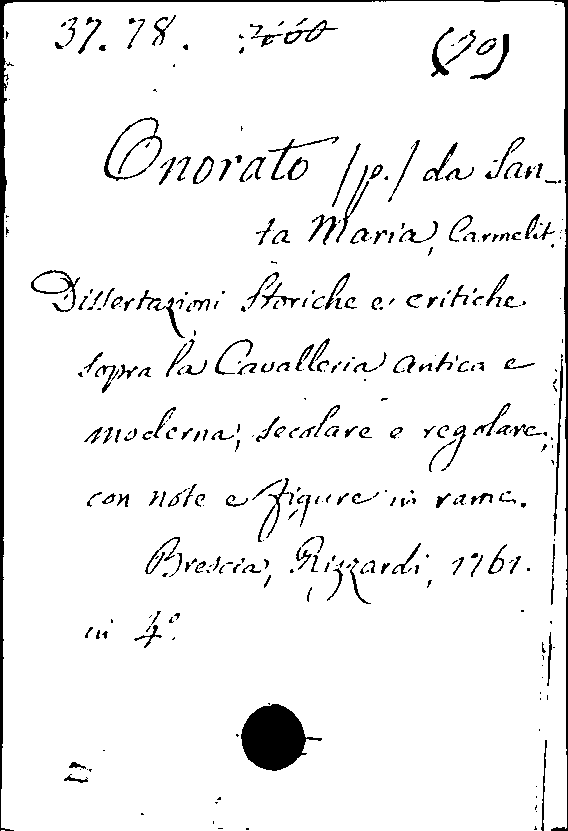 37.78. (70)
Onorato /p./ da San-
ta Maria, Carmelit.
Dissertazioni Storiche e critiche
sopra la Cavalleria antica e
moderna, secolare e regolare,
con note e figure in rame.
Brescia, Rizzardi, 1761.
in 4º.